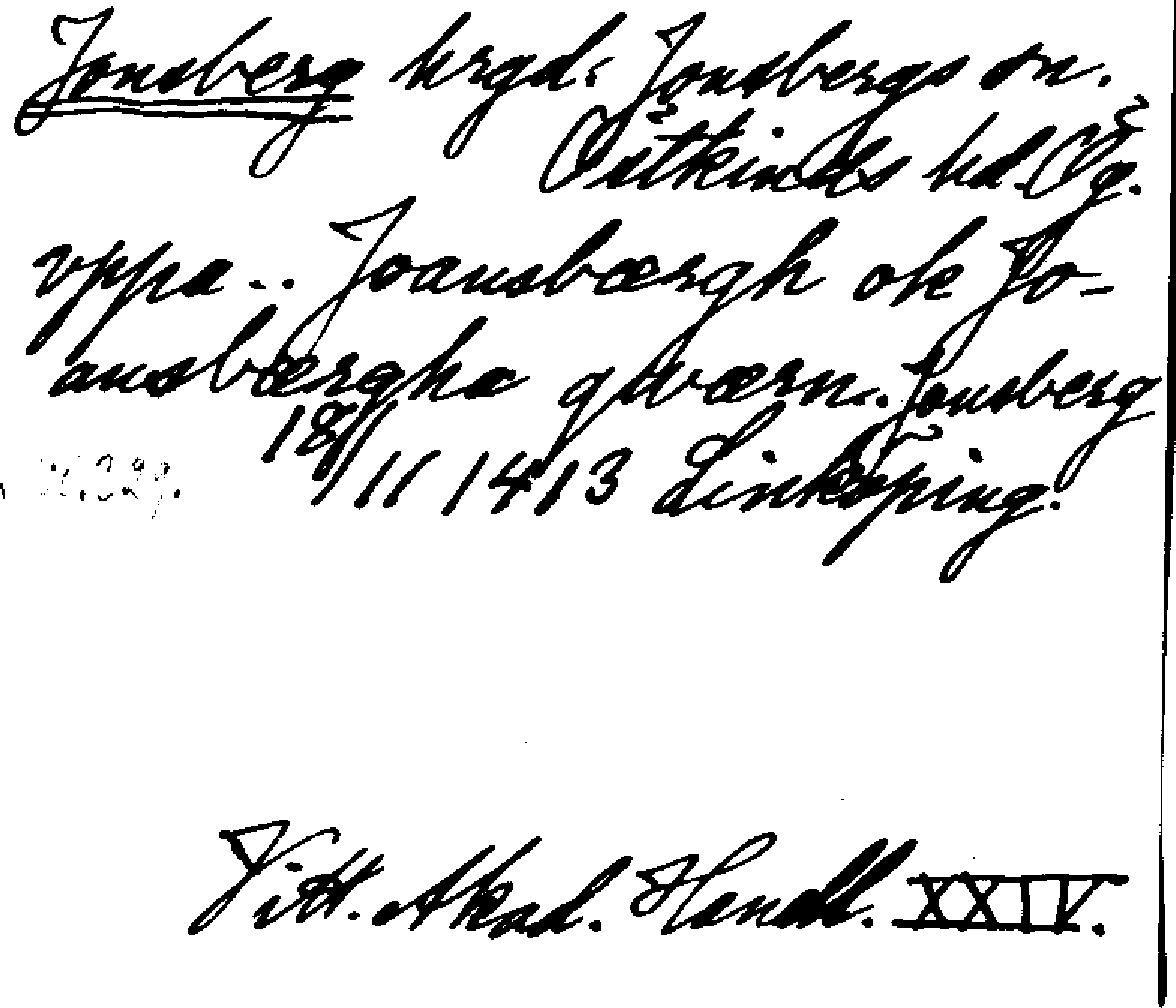 Jonsberg hrgd: Jonsbergs sn.
Östkinds hd. Ög.
vppa .. Joansbærgh ok Jo-
ansbærgha qwærn. Jonsberg
18/11 1413 Linköping.
329.
Vitt. Akad. Handl. XXIV.